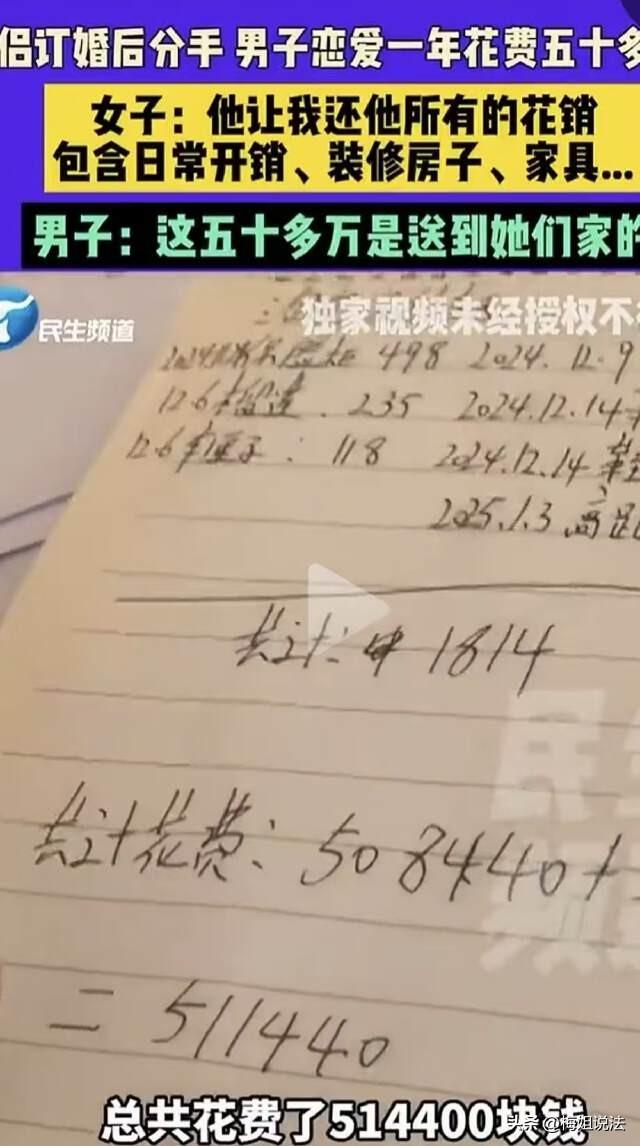 侣订婚后分手 男子恋爱一年花费五十多
女子：他让我还他所有的花销
包含日常开销、装修房子、家具...
男子：这五十多万是送到她们家的
民生频道
独家视频未经授权不
498 2024.12.9
12.6 235 2024.12.14
12.6 118 2024.12.14
2025.1.3 高
共计：1814
共计花费：508440+
=511440
民生
频道
总共花费了514400块钱
头条 @梅姐说法